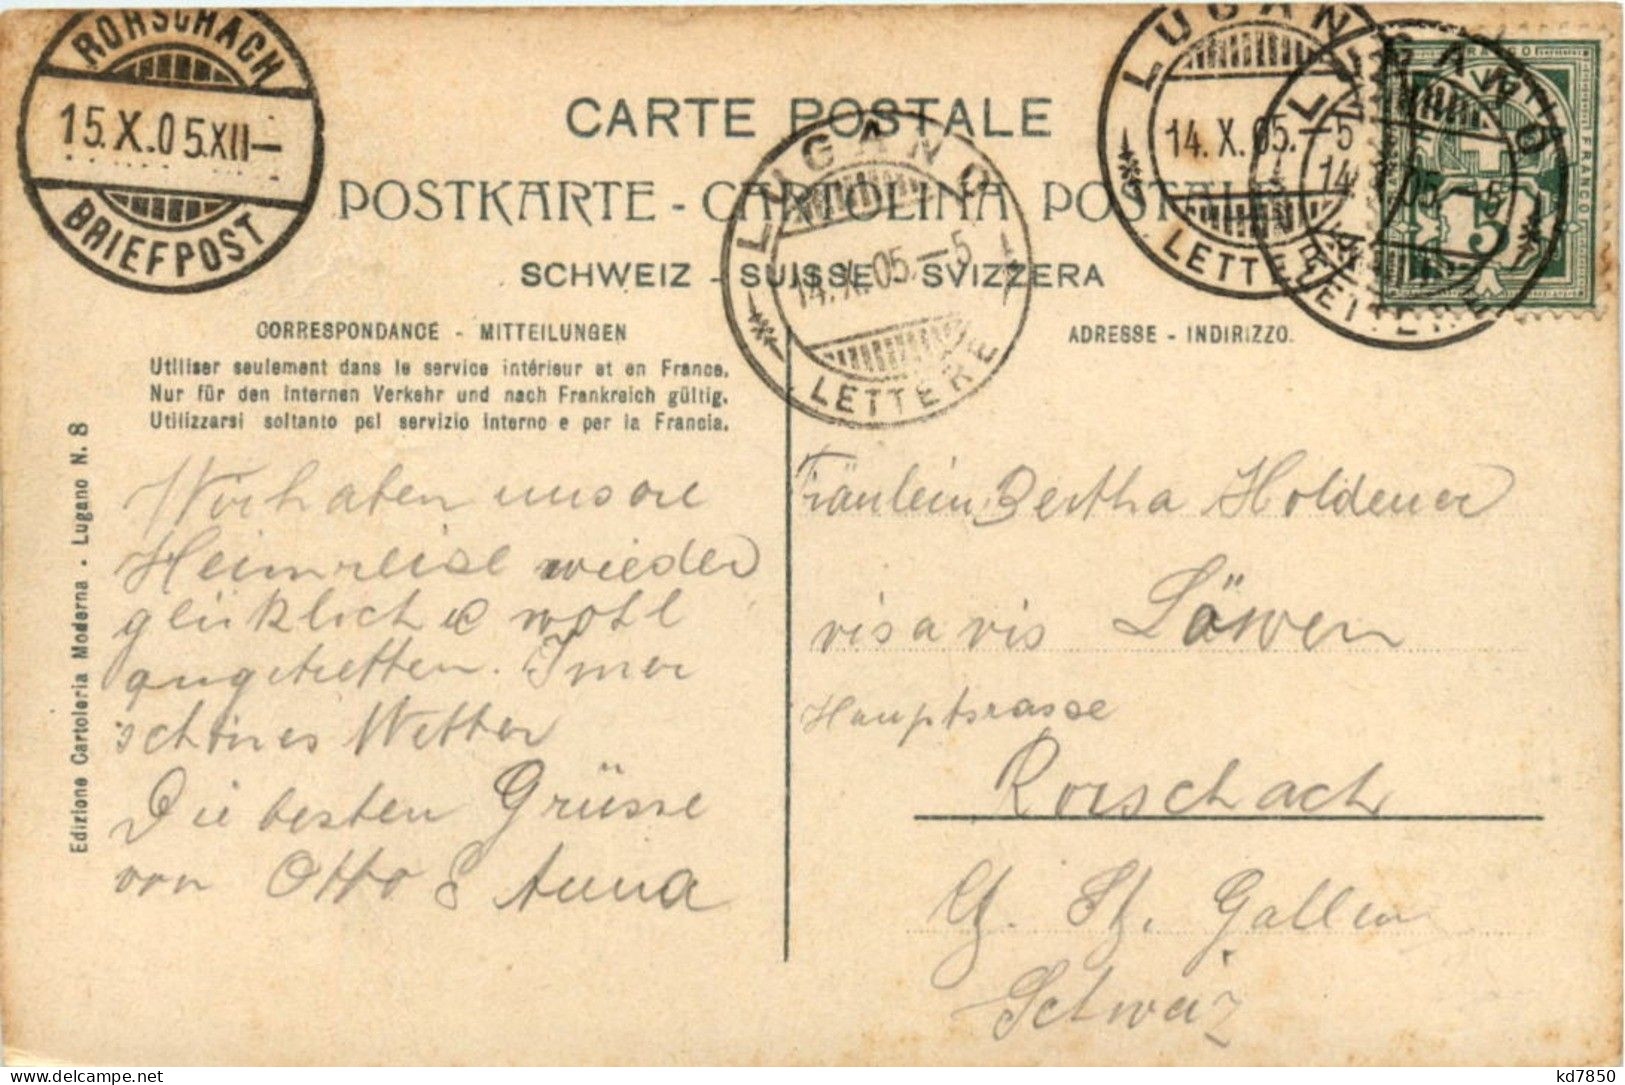 RORSCHACH
15.X.05.XII—
BRIEFPOST
LUGANO
14.X.05.—5
LETTERE
LUGANO
14.X.05.—5
LETTERE
LUGANO
14.X.05.—5
LETTERE
FRANCO
5
CARTE POSTALE
POSTKARTE - CARTOLINA POSTALE
SCHWEIZ - SUISSE - SVIZZERA
CORRESPONDANCE - MITTEILUNGEN
Utiliser seulement dans le service intérieur et en France.
Nur für den internen Verkehr und nach Frankreich gültig.
Utilizzarsi soltanto pel servizio interno e per la Francia.
ADRESSE - INDIRIZZO.
Edizione Cartoleria Moderna - Lugano N. 8
Wir haben unsere
Heimreise wieder
glücklich & wohl
angetretten. Imer
schönes Wetter
Die besten Grüsse
von Otto & Anna
Fräulein Bertha Holdener
vis a vis Löwen
Hauptsrasse
Rorschach
Ct. St. Gallen
Schweiz
kd7850